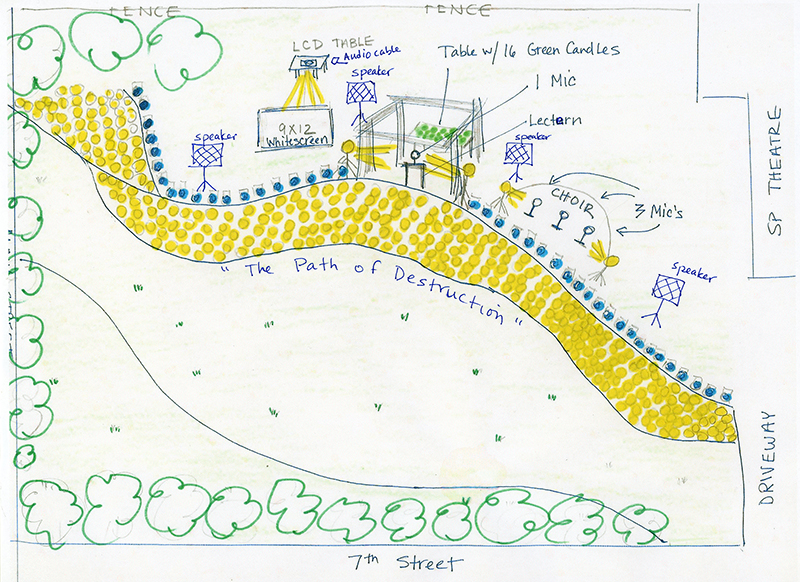 FENCE
FENCE
LCD TABLE
Audio cable
speaker
Table w/ 16 Green Candles
1 Mic
Lectern
9X12
Whitescreen
speaker
speaker
CHOIR
3 Mic's
SP THEATRE
speaker
"The Path of Destruction"
DRIVEWAY
7th Street